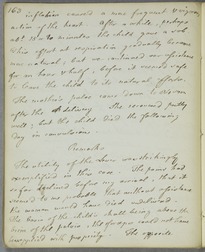 163 inflation caused a more frequent & vigorous
action of the heart. After a while, perhaps
10 minutes the child gave a sob
effort at respiration gradually became
more natural, but we continued our assistance
for an hour & half, before it seemed safe
to leave the child to its natural efforts.
The mother's pulse came down to
after the delivery. She recovered pretty
well; but the child died the following
day in convulsions.
Remarks
The utility of the was strikingly
exemplified in this case. The pains had
so far declined before my arrival, that it
seemed to me probable that without assistance
the woman would have died undelivered.
The of the child's skull being above the
brim of the pelvis, the forceps could not have
been applied with propriety. The opposite